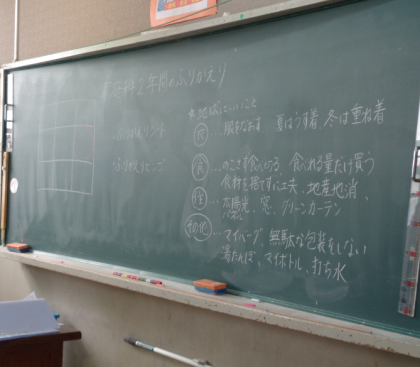 家庭科2年間のふりかえり
・ふりかえりシート
・ふりかえりビンゴ
*地球にいいこと
衣…服をなおす 夏はうす着、冬は重ね着
食…のこさず食べきる 食べれる量だけ買う
食材を捨てずに工夫、地産地消、
住…太陽光パネル、窓、グリーンカーテン
その他…マイバッグ、無駄な包装をしない
マイボトル、打ち水